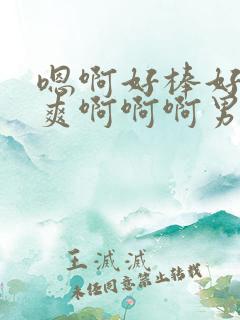 嗯啊好棒好
爽啊啊啊男
王滅滅
未经同意禁止转载